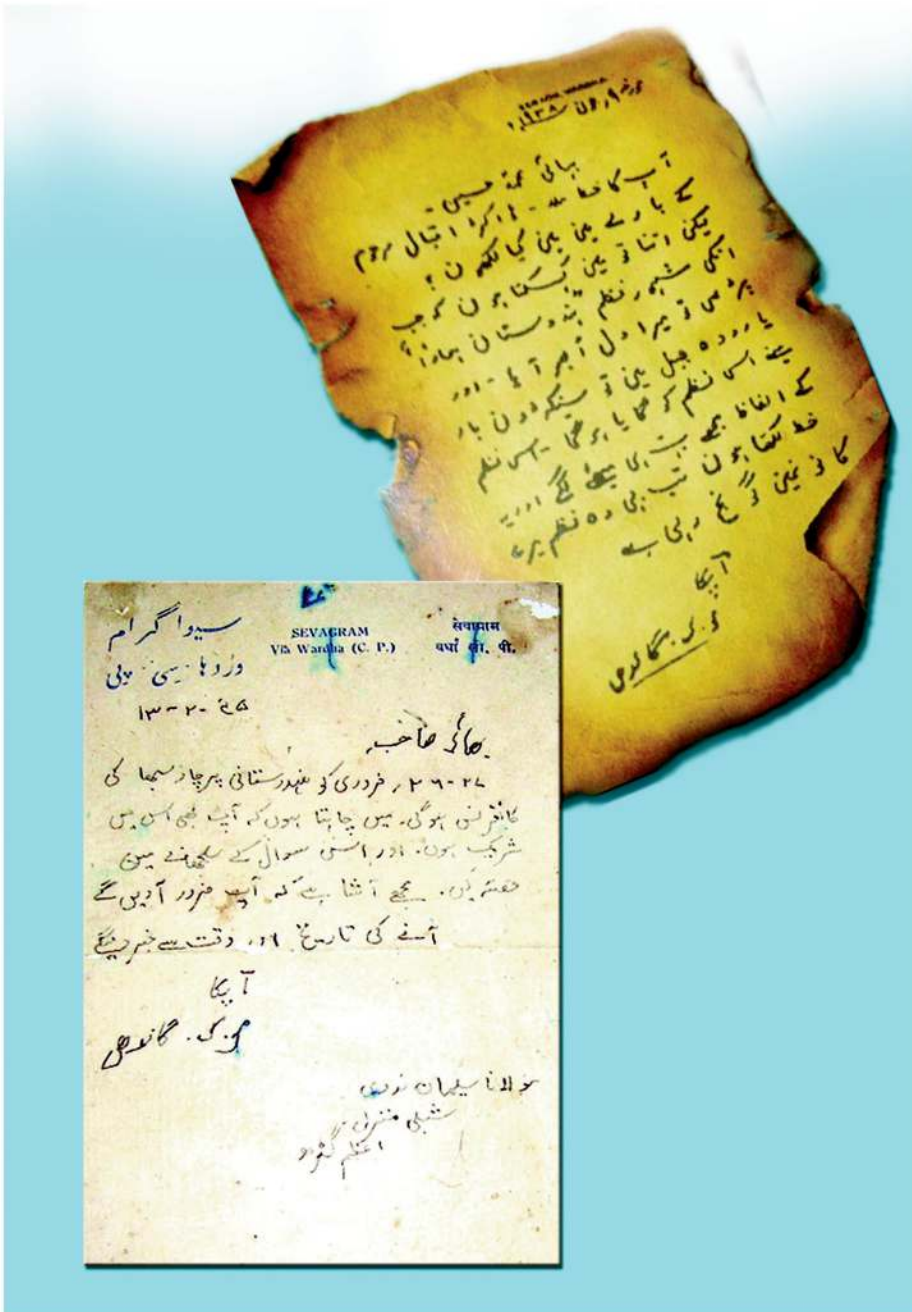 SEGAON, WARDHA.
مورخہ ۹ جون ۱۹۳۸ء
بھائی محمد حسین۔
آپ کا خط ملا۔ ڈاکٹر اقبال مرحوم
کے بارے میں میں کیا لکھوں؟
لیکن اتنا تو میں کہسکتا ہوں کہ جب
انکی مشہور نظم ”ہندوستان ہمارا“
پڑھی تو میرا دل ابھر آیا۔ اور
یارودہ جیل میں تو سینکڑوں بار
مینے اس نظم کو گایا ہوگا۔ اس نظم
کے الفاظ مجھے بہت ہی میٹھے لگے اور یہ
خط لکھتا ہوں تب بھی وہ نظم میرے
کانوں میں گونج رہی ہے
آپکا
م. ک. گاندھی
سیوا گرام
وردھا۔ سی۔ پی
SEVAGRAM
Via Wardha (C. P.)
सेवाग्राम
वर्धा सी. पी.
۱۳-۲-۴۵
بھائی صاحب،
۲۶-۲۷ فروری کو ہندوستانی پرچار سبھا کی
کانفرنس ہوگی۔ میں چاہتا ہوں کہ آپ بھی اس میں
شریک ہوں۔ اور اس سوال کے سلجھانے میں
حصہ لیں۔ مجھے آشا ہے کہ آپ ضرور آویں گے
آنے کی تاریخ اور وقت سے خبر دینگے
آپکا
م. ک. گاندھی
مولانا سلیمان ندوی
شبلی منزل
اعظم گڑھ